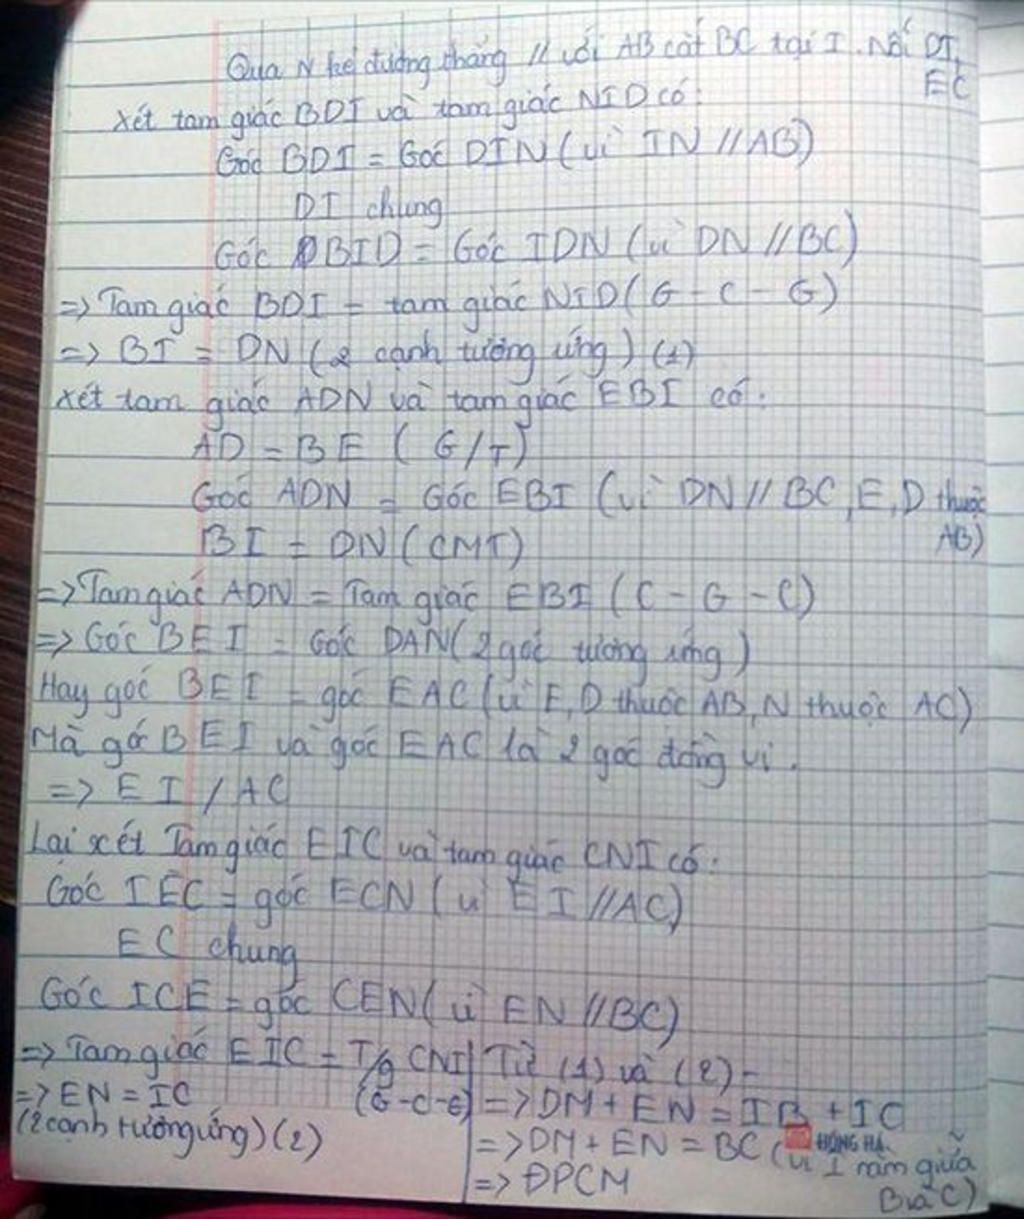 Qua N kẻ đường thẳng // với AB cắt BC tại I. Nối DI,
EC
Xét tam giác BDI và tam giác NID có:
Góc BDI = Góc DIN (vì IN // AB)
DI chung
Góc BID = Góc IDN (vì DN // BC)
=> Tam giác BDI = tam giác NID (G - C - G)
=> BI = DN (2 cạnh tương ứng) (1)
Xét tam giác ADN và tam giác EBI có:
AD = BE (G/T)
Góc ADN = Góc EBI (vì DN // BC, E, D thuộc
AB)
BI = DN (CMT)
=> Tam giác ADN = Tam giác EBI (C - G - C)
=> Góc BEI = Góc DAN (2 góc tương ứng)
Hay góc BEI = góc EAC (vì E, D thuộc AB, N thuộc AC)
Mà góc BEI và góc EAC là 2 góc đồng vị.
=> EI / AC
Lại xét Tam giác EIC và tam giác CNI có:
Góc IEC = góc ECN (vì EI // AC)
EC chung
Góc ICE = góc CEN (vì EN // BC)
=> Tam giác EIC = T/g CNI
(G-C-G)
=> EN = IC
(2 cạnh tương ứng) (2)
Từ (1) và (2) -
=> DM + EN = IB + IC
=> DM + EN = BC (vì I nằm giữa
B và C)
=> ĐPCM
HỒNG HÀ